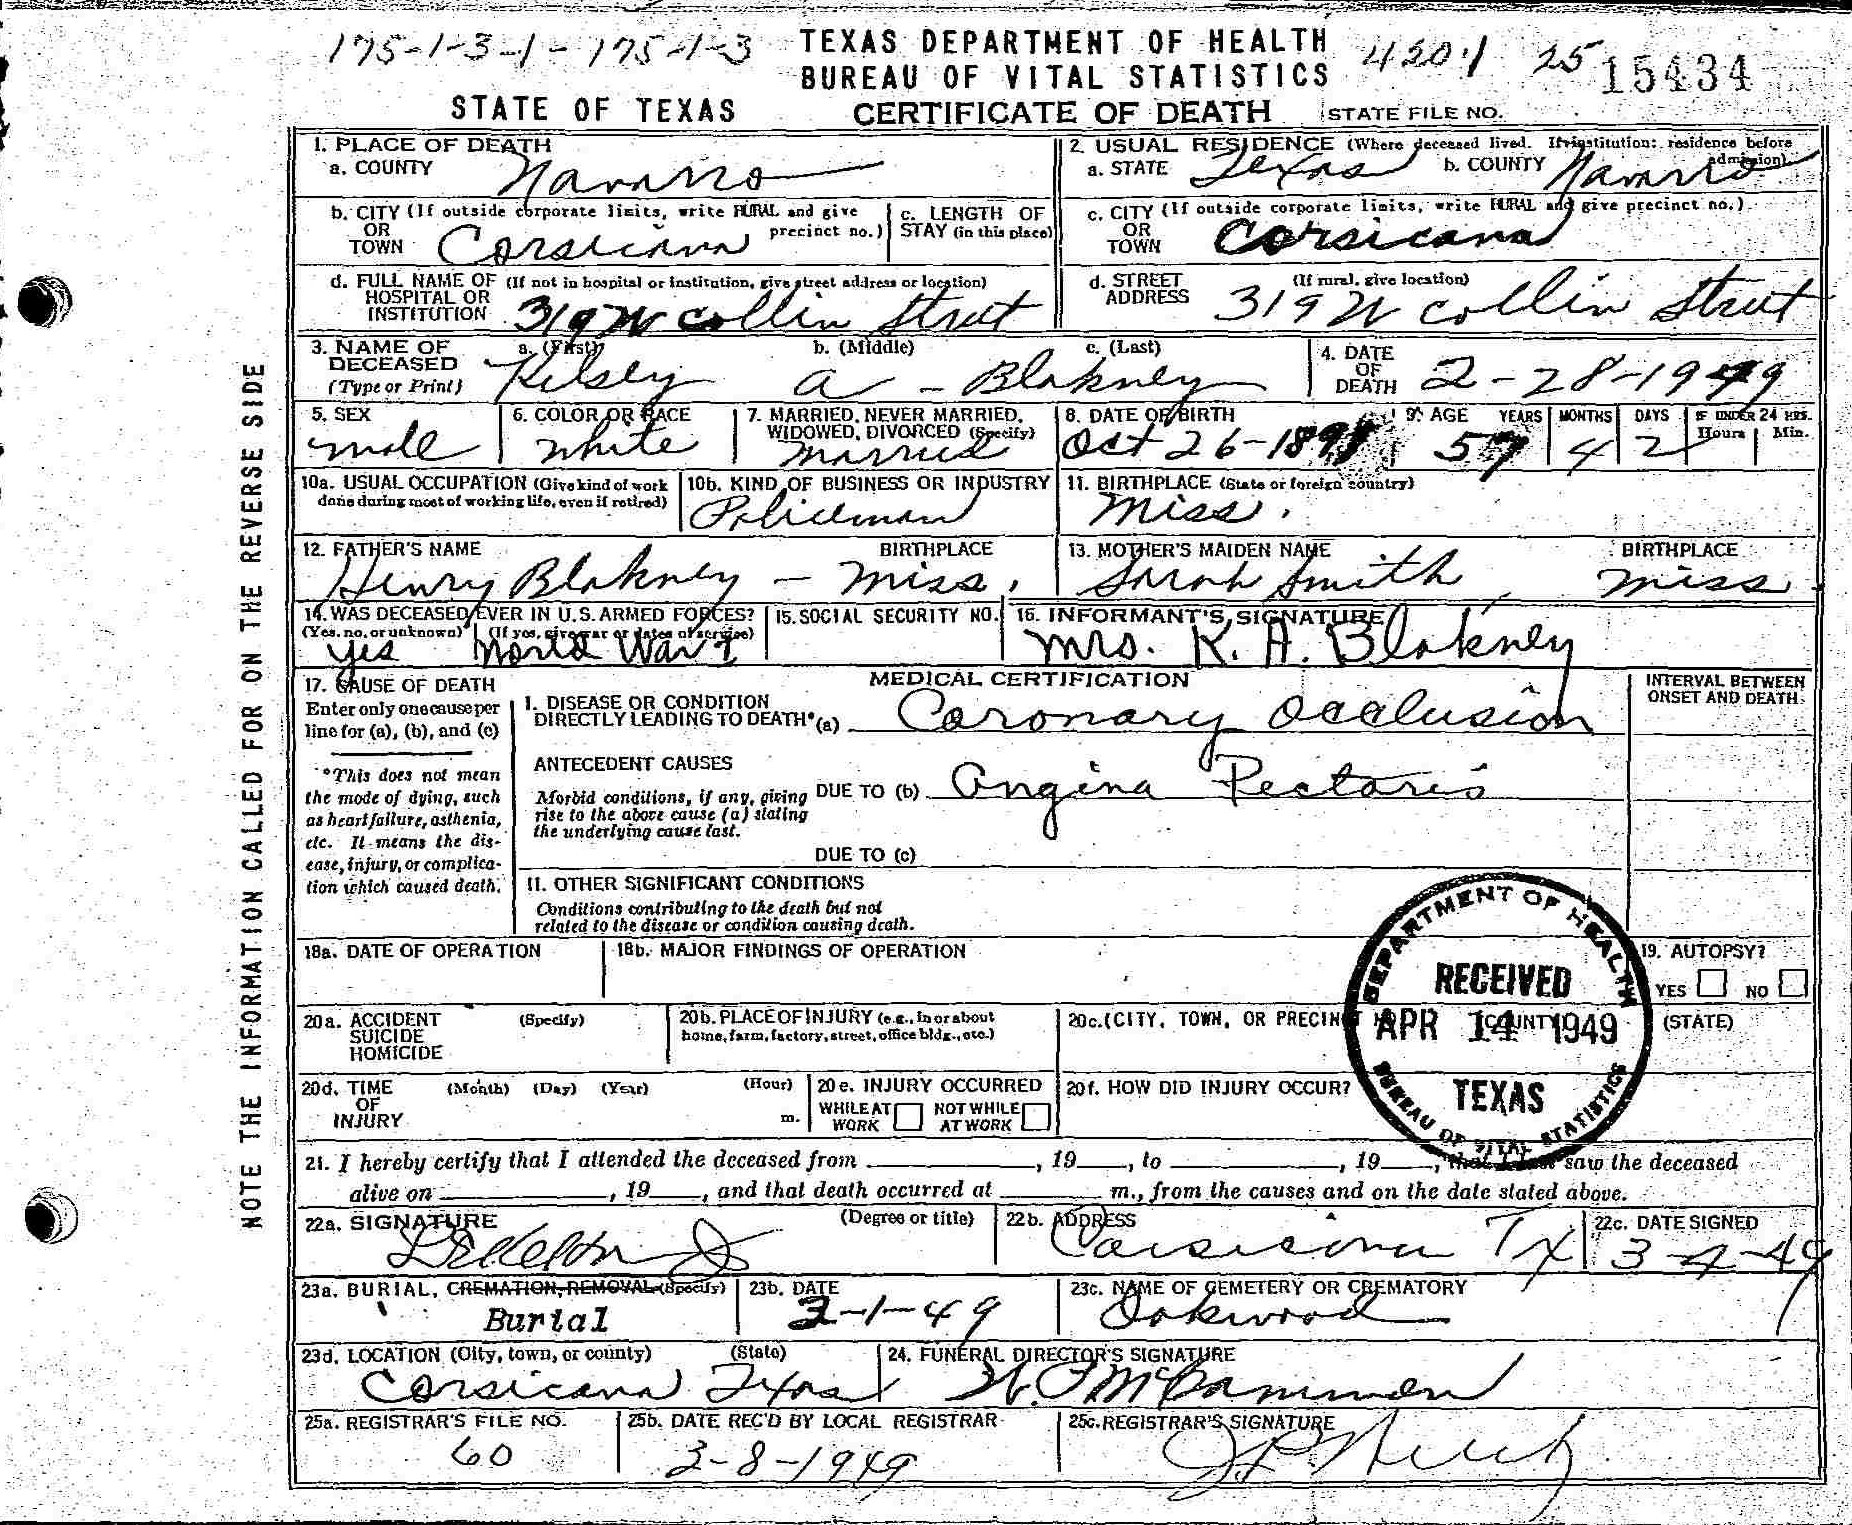 175-1-3-1 - 175-1-3 TEXAS DEPARTMENT OF HEALTH 420.1 25 15434
BUREAU OF VITAL STATISTICS
STATE OF TEXAS CERTIFICATE OF DEATH STATE FILE NO.
NOTE THE INFORMATION CALLED FOR ON THE REVERSE SIDE
1. PLACE OF DEATH
a. COUNTY Navarro
2. USUAL RESIDENCE (Where deceased lived. If institution: residence before admission)
a. STATE Texas b. COUNTY Navarro
b. CITY (If outside corporate limits, write RURAL and give precinct no.)
OR
TOWN Corsicana
c. LENGTH OF
STAY (in this place)
c. CITY (If outside corporate limits, write RURAL and give precinct no.)
OR
TOWN Corsicana
d. FULL NAME OF (If not in hospital or institution, give street address or location)
HOSPITAL OR
INSTITUTION 319 W Collin Street
d. STREET (If rural, give location)
ADDRESS 319 W Collin Street
3. NAME OF DECEASED (Type or Print)
a. (First) b. (Middle) c. (Last)
Kelsey A - Blakney
4. DATE OF DEATH 2-28-1949
5. SEX
male
6. COLOR OR RACE
White
7. MARRIED, NEVER MARRIED, WIDOWED, DIVORCED (Specify)
Married
8. DATE OF BIRTH
Oct 26-1891
9. AGE YEARS MONTHS DAYS IF UNDER 24 HRS. Hours Min.
57 4 2
10a. USUAL OCCUPATION (Give kind of work
done during most of working life, even if retired)
10b. KIND OF BUSINESS OR INDUSTRY
Policeman
11. BIRTHPLACE (State or foreign country)
Miss.
12. FATHER'S NAME BIRTHPLACE
Henry Blakney - Miss.
13. MOTHER'S MAIDEN NAME BIRTHPLACE
Sarah Smith, Miss.
14. WAS DECEASED EVER IN U.S. ARMED FORCES?
(Yes, no, or unknown) (If yes, give war or dates of service)
yes World War I
15. SOCIAL SECURITY NO.
16. INFORMANT'S SIGNATURE
Mrs. K. A. Blakney
17. CAUSE OF DEATH
Enter only one cause per
line for (a), (b), and (c)
*This does not mean
the mode of dying, such
as heart failure, asthenia,
etc. It means the dis-
ease, injury, or complica-
tion which caused death.
MEDICAL CERTIFICATION
INTERVAL BETWEEN
ONSET AND DEATH
I. DISEASE OR CONDITION
DIRECTLY LEADING TO DEATH* (a) Coronary Occlusion
ANTECEDENT CAUSES
Morbid conditions, if any, giving
rise to the above cause (a) stating
the underlying cause last.
DUE TO (b) Angina Pectoris
DUE TO (c)
II. OTHER SIGNIFICANT CONDITIONS
Conditions contributing to the death but not
related to the disease or condition causing death.
18a. DATE OF OPERATION
18b. MAJOR FINDINGS OF OPERATION
19. AUTOPSY?
YES NO
DEPARTMENT OF HEALTH
RECEIVED
APR 14 1949
TEXAS
BUREAU OF VITAL STATISTICS
20a. ACCIDENT (Specify)
SUICIDE
HOMICIDE
20b. PLACE OF INJURY (e.g., in or about
home, farm, factory, street, office bldg., etc.)
20c. (CITY, TOWN, OR PRECINCT NO.) (COUNTY) (STATE)
20d. TIME (Month) (Day) (Year) (Hour)
OF
INJURY m.
20e. INJURY OCCURRED
WHILE AT WORK NOT WHILE AT WORK
20f. HOW DID INJURY OCCUR?
21. I hereby certify that I attended the deceased from , 19 , to , 19 , that I last saw the deceased
alive on , 19 , and that death occurred at m., from the causes and on the date stated above.
22a. SIGNATURE (Degree or title)
22b. ADDRESS
Corsicana Tx
22c. DATE SIGNED
3-4-49
23a. BURIAL, CREMATION, REMOVAL (Specify)
Burial
23b. DATE
3-1-49
23c. NAME OF CEMETERY OR CREMATORY
Oakwood
23d. LOCATION (City, town, or county) (State)
Corsicana Texas
24. FUNERAL DIRECTOR'S SIGNATURE
McCammon
25a. REGISTRAR'S FILE NO.
60
25b. DATE REC'D BY LOCAL REGISTRAR
3-8-1949
25c. REGISTRAR'S SIGNATURE